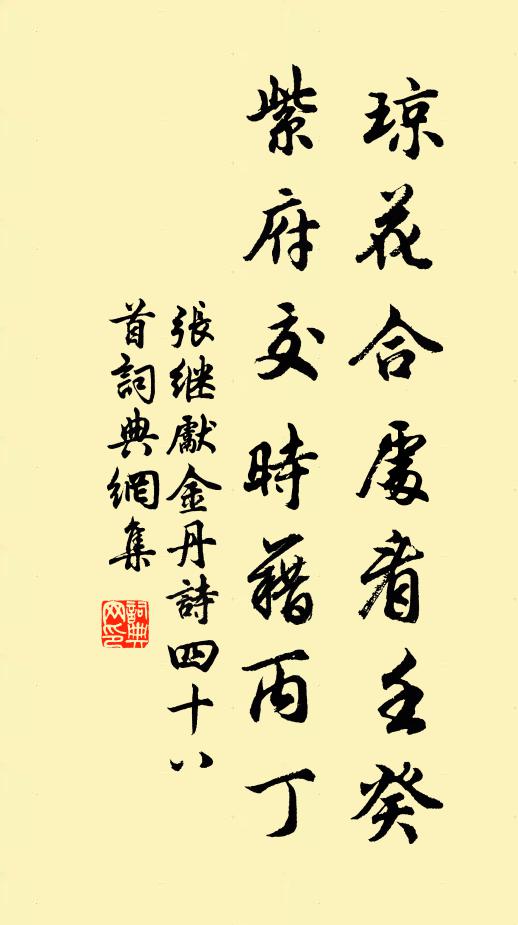 琼花合處看壬癸
紫府交時藉丙丁
張继獻金丹詩四十八
首詞典網集
詞典
网印